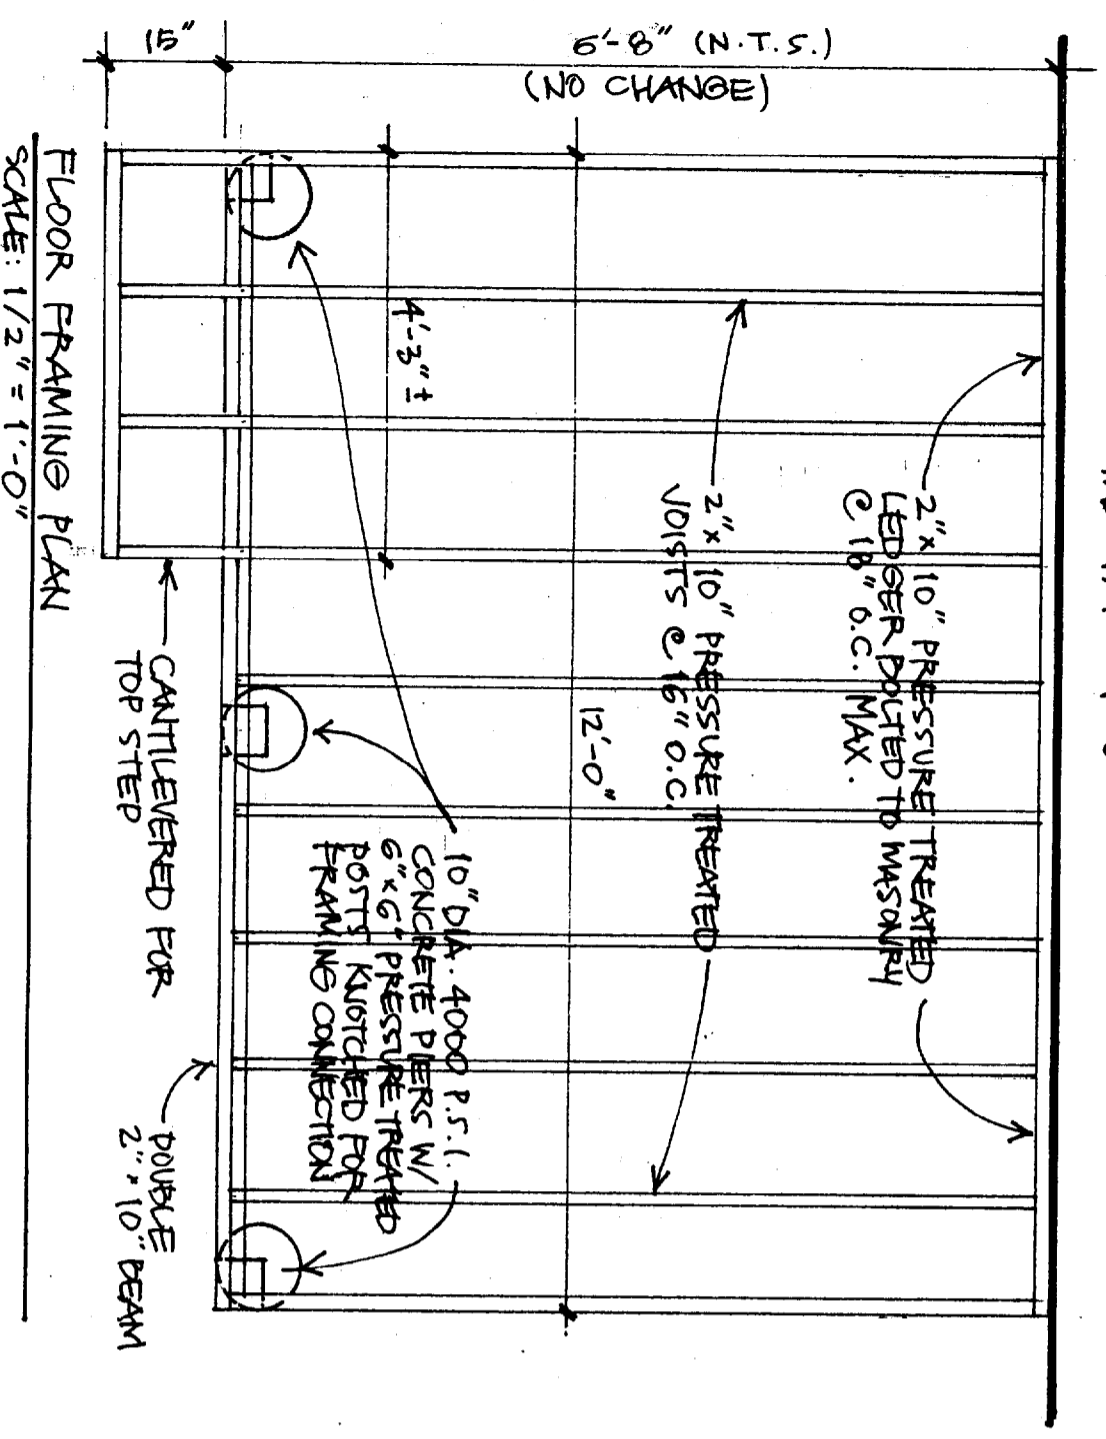 15"
6'-8" (N.T.S.)
(NO CHANGE)
2"x 10" PRESSURE TREATED
LEDGER BOLTED TO MASONRY
@ 18" O.C. MAX.
2"x 10" PRESSURE TREATED
JOISTS @ 16" O.C.
12'-0"
4'-3" ±
10" DIA. 4000 P.S.I.
CONCRETE PIERS W/
6"x6" PRESSURE TREATED
POSTS KNOTCHED FOR
FRAMING CONNECTION
CANTILEVERED FOR
TOP STEP
DOUBLE
2"x 10" BEAM
FLOOR FRAMING PLAN
SCALE: 1/2" = 1'-0"